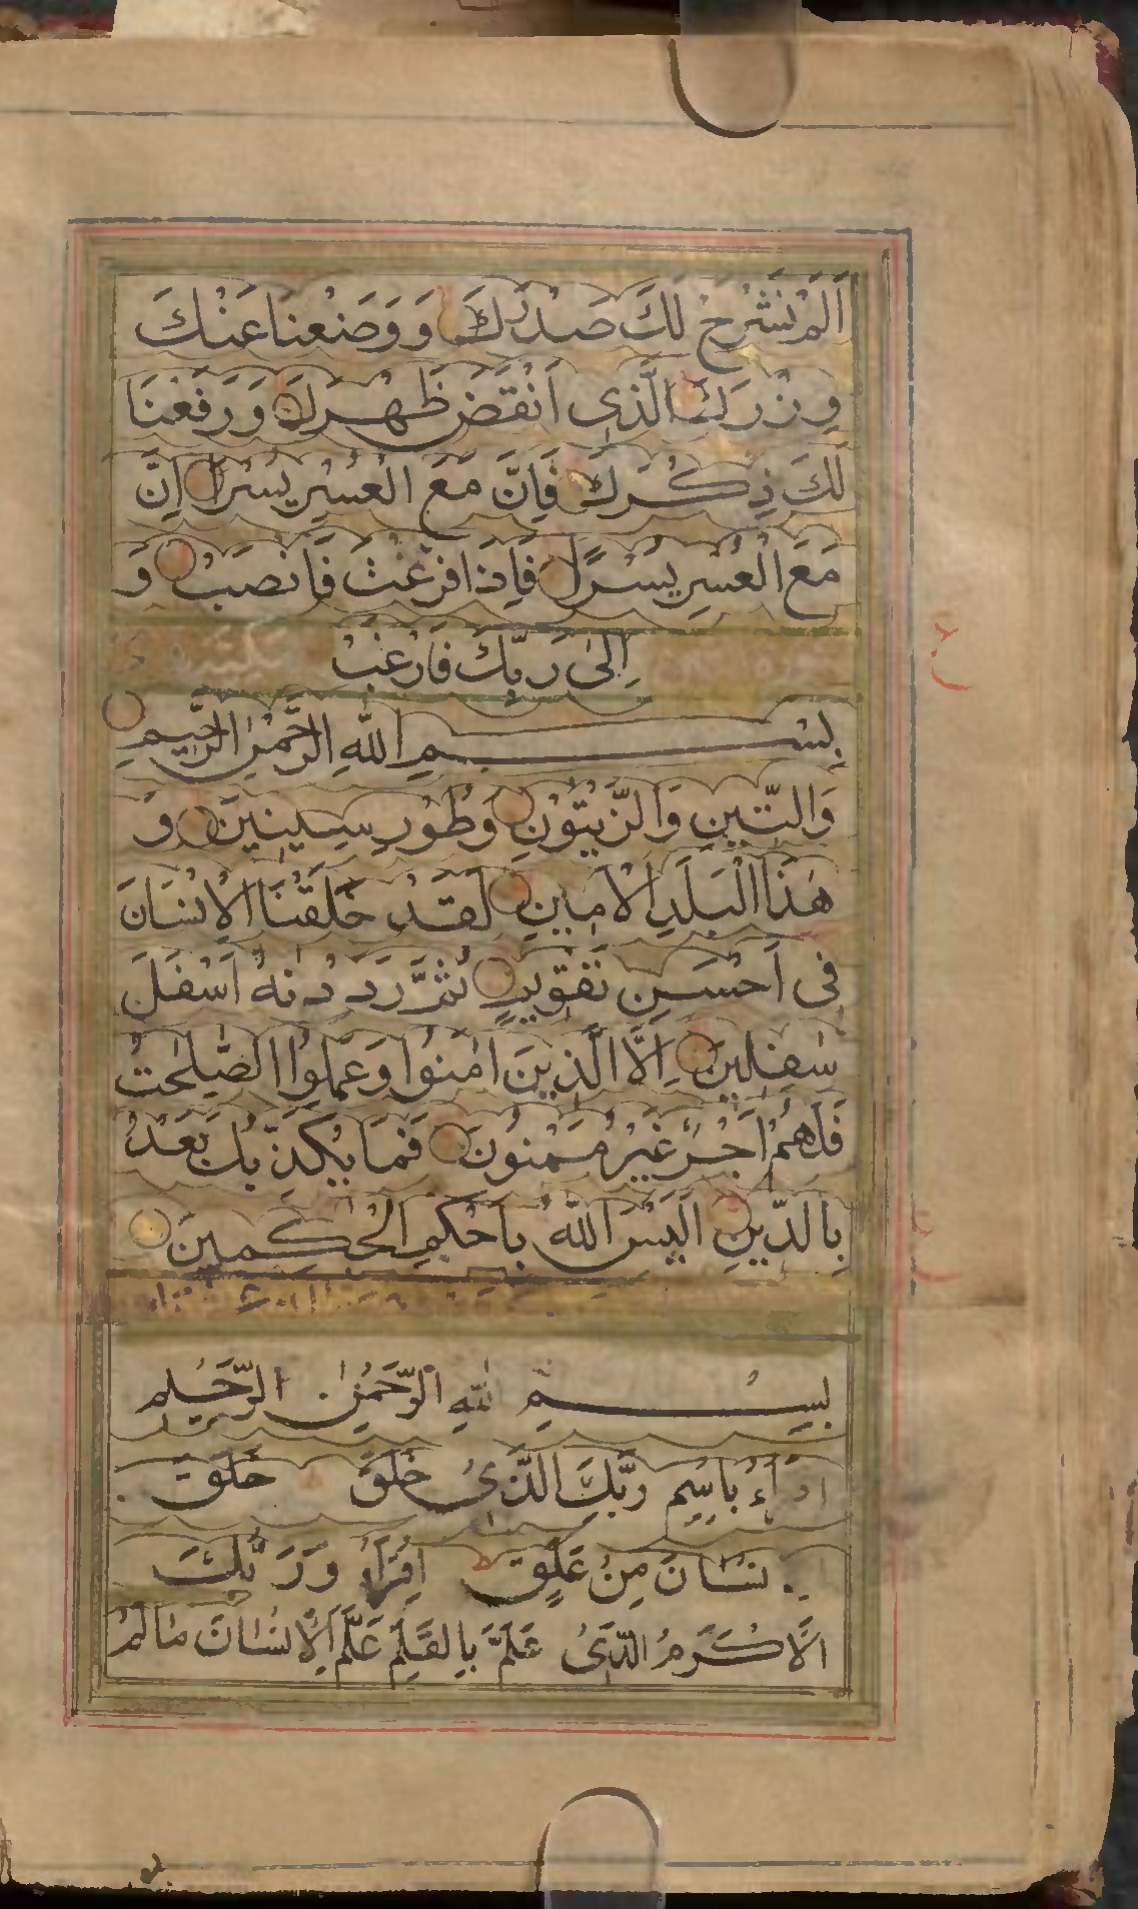 اَلَمْ نَشْرَحْ لَكَ صَدْرَكَ وَ وَضَعْنَا عَنْكَ
وِزْرَكَ الَّذِى اَنْقَضَ ظَهْرَكَ وَ رَفَعْنَا
لَكَ ذِكْرَكَ فَاِنَّ مَعَ الْعُسْرِ يُسْرًا اِنَّ
مَعَ الْعُسْرِ يُسْرًا فَاِذَا فَرَغْتَ فَانْصَبْ وَ
اِلىٰ رَبِّكَ فَارْغَبْ
بِسْمِ اللّٰهِ الرَّحْمٰنِ الرَّحِيمِ
وَالتِّينِ وَالزَّيْتُوْنِ وَطُوْرِ سِينِينَ وَ
هٰذَا الْبَلَدِ الْاَمِينِ لَقَدْ خَلَقْنَا الْاِنْسَانَ
فِى اَحْسَنِ تَقْوِيمٍ ثُمَّ رَدَدْنٰهُ اَسْفَلَ
سٰفِلِينَ اِلَّا الَّذِينَ اٰمَنُوا وَعَمِلُوا الصّٰلِحٰتِ
فَلَهُمْ اَجْرٌ غَيْرُ مَمْنُونَ فَمَا يُكَذِّبُكَ بَعْدُ
بِالدِّينِ اَلَيْسَ اللّٰهُ بِاَحْكَمِ الْحٰكِمِينَ
بِسْمِ للّٰهِ الرَّحْمٰنِ الرَّحِيمِ
بِاسْمِ رَبِّكَ الَّذِىْ خَلَقَ خَلَقَ
نْسَانَ مِنْ عَلَقٍ اِقْرَاْ وَرَبُّكَ
الْاَكْرَمُ الَّذِىْ عَلَّمَ بِالْقَلَمِ عَلَّمَ الْاِنْسَانَ مَا لَمْ